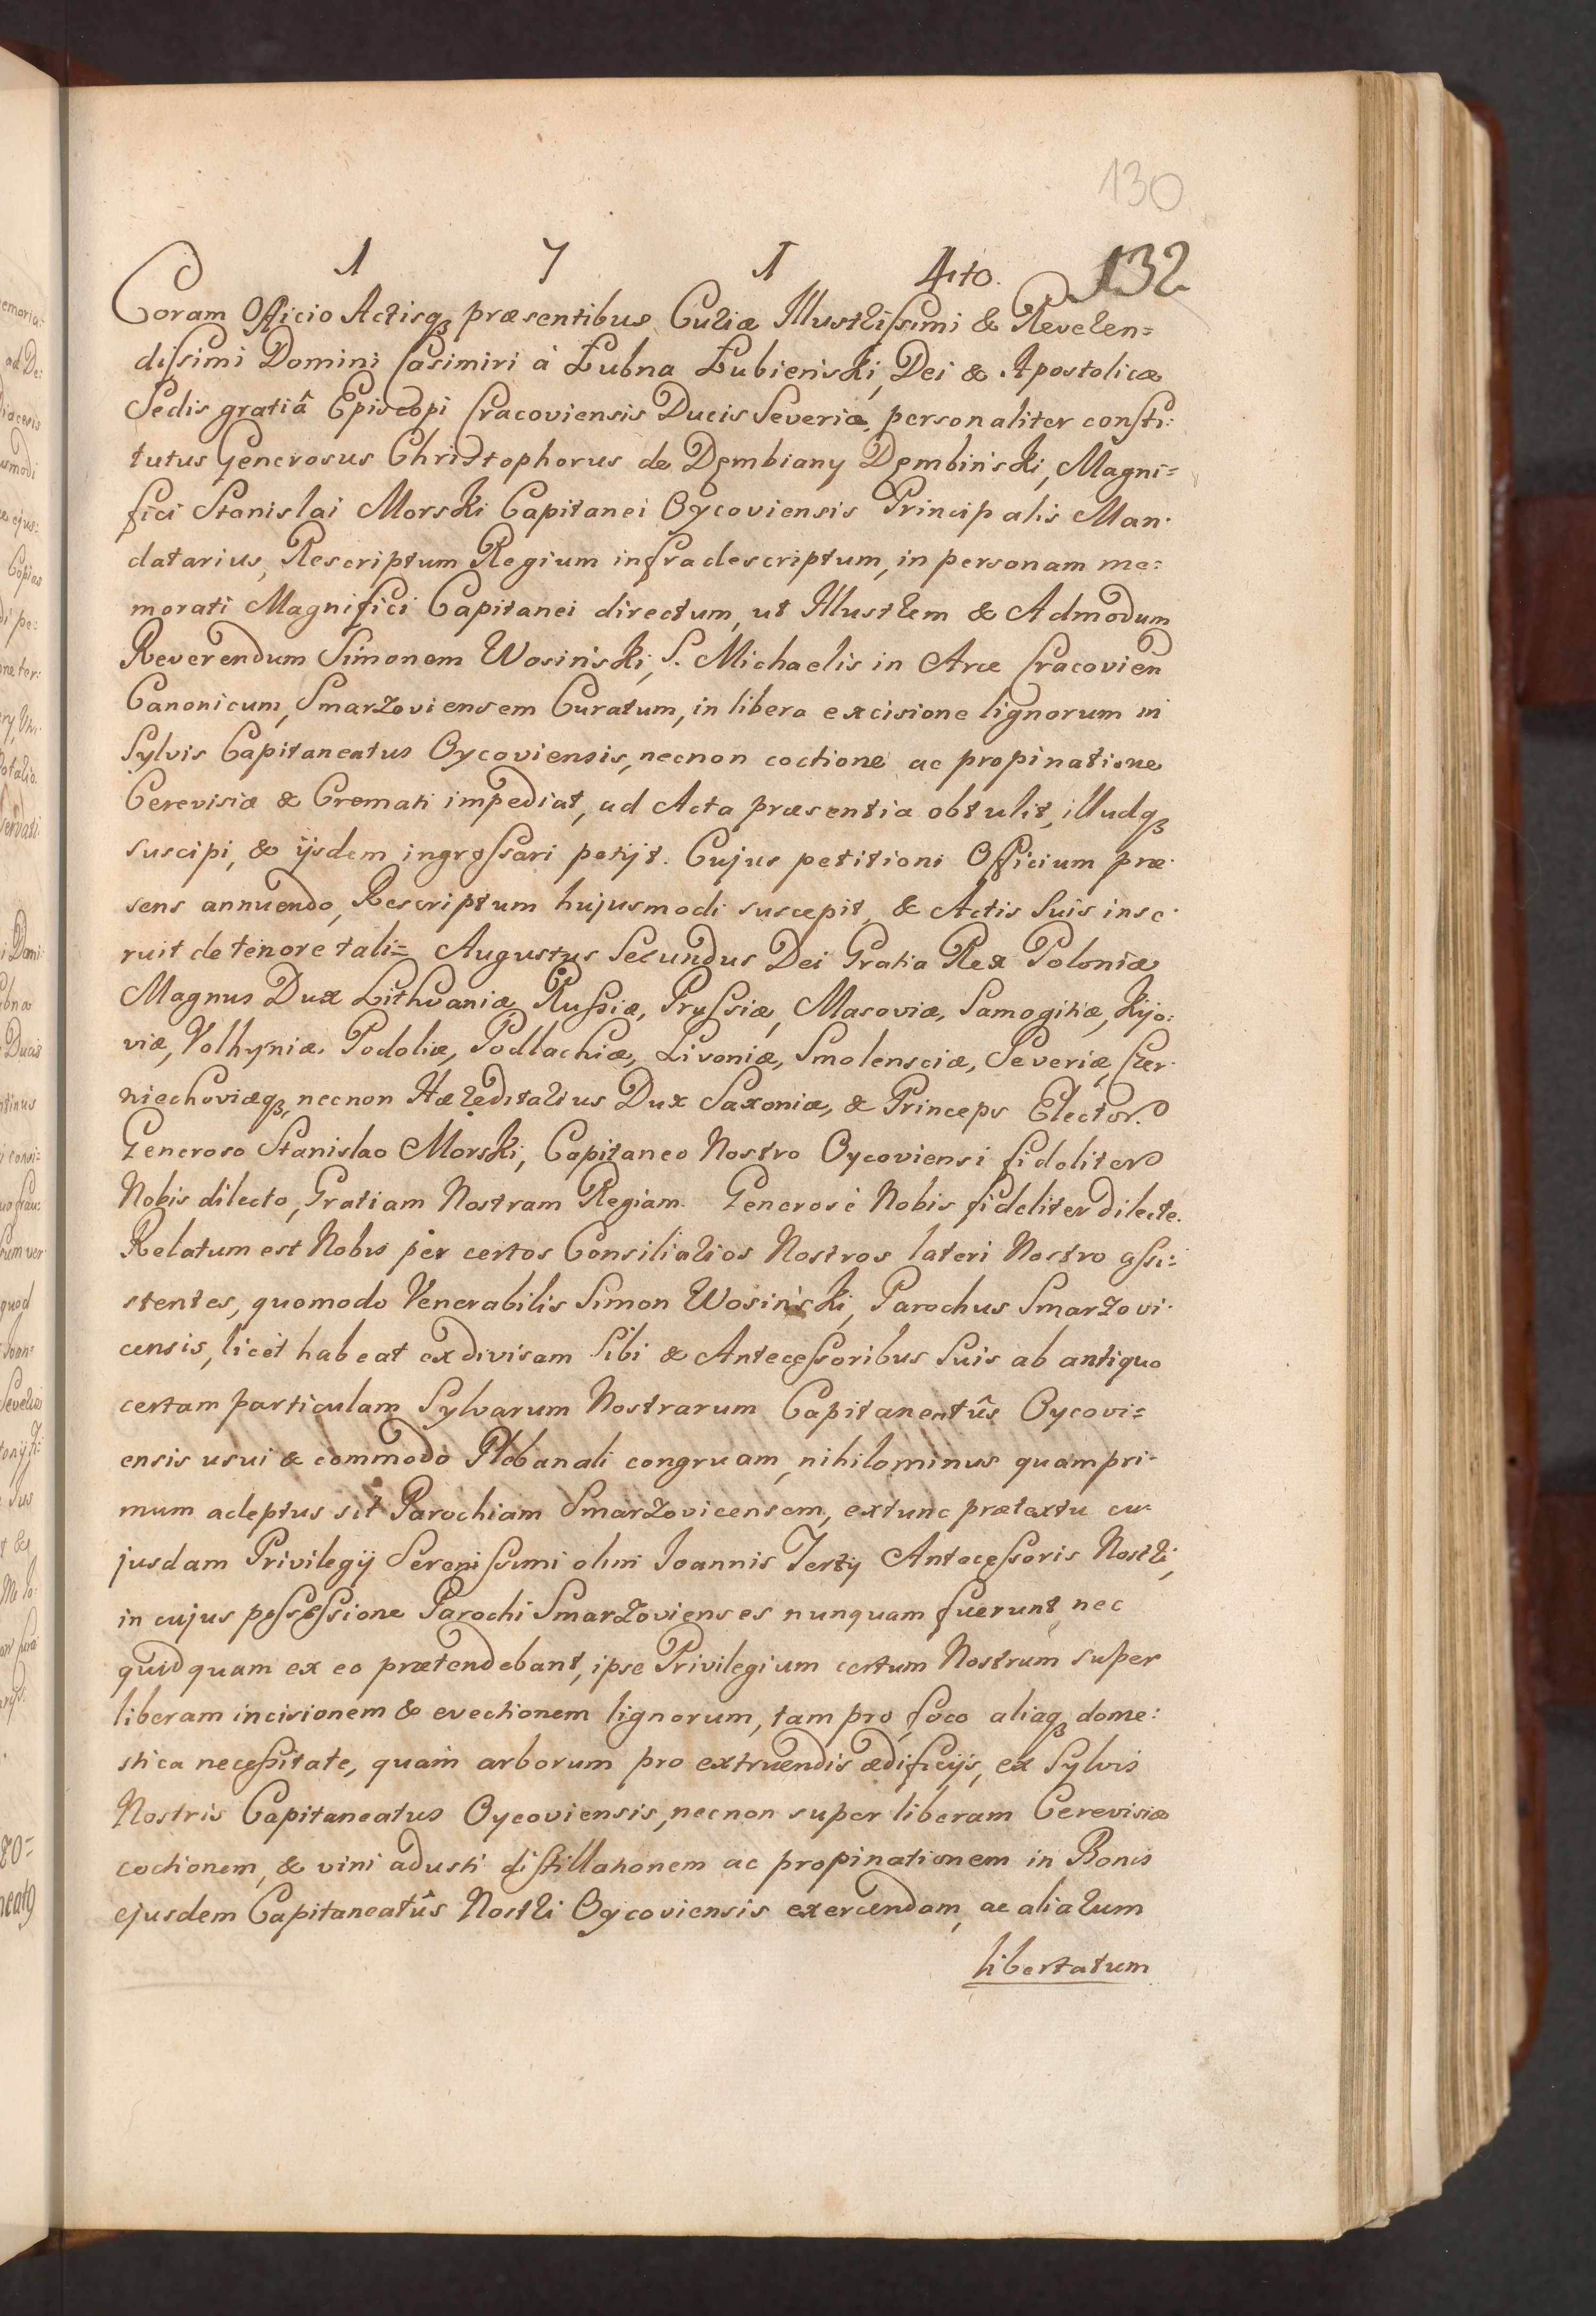 130
1 7 1 4to. 132
Coram Officio Actisq₃ præsentibus Curiæ Illustrissimi & Reveren=
dissimi Domini Casimiri à Łubna Łubieński, Dei & Apostolicæ
Sedis gratiâ Episcopi Cracoviensis Ducis Severiæ, personaliter consti:
tutus Generosus Christophorus de Dembiany Dembiński, Magni=
fici Stanislai Morski Capitanei Oycoviensis Principalis Man-
datarius, Rescriptum Regium infradescriptum, in personam me:
morati Magnifici Capitanei directum, ut Illustrem & Admodum
Reverendum Simonem Wosiński, S. Michaelis in Arce Cracovien
Canonicum, Smarzoviensem Curatum, in libera excisione lignorum in
Sylvis Capitaneatus Oycoviensis, necnon coctione ac propinatione
Cerevisiæ & Cremati impediat, ad Acta præsentia obtulit, illudq₃
suscipi, & ijsdem ingrossari petijt. Cujus petitioni Officium præ-
sens annuendo, Rescriptum hujusmodi suscepit, & Actis Suis inse-
ruit de tenore tali= Augustus Secundus Dei Gratia Rex Poloniæ
Magnus Dux Lithvaniæ, Russiæ, Prussiæ, Masoviæ, Samogitiæ, Kijo:
viæ, Volhyniæ, Podoliæ, Podlachiæ, Livoniæ, Smolensciæ, Severiæ, Czer-
niechoviæq₃, necnon Hæreditarius Dux Saxoniæ, & Princeps Elector.
Generoso Stanislao Morski, Capitaneo Nostro Oycoviensi fideliter
Nobis dilecto, Gratiam Nostram Regiam. Generose Nobis fideliter dilecte.
Relatum est Nobis per certos Consiliarios Nostros lateri Nostro assi=
stentes, quomodo Venerabilis Simon Wosiński, Parochus Smarzovi-
censis, licet habeat exdivisam Sibi & Antecessoribus Suis ab antiquo
certam particulam Sylvarum Nostrarum Capitaneatûs Oycovi=
ensis usui & commodo Plebanali congruam, nihilominus quampri-
mum adeptus sit Parochiam Smarzovicensem, extunc prætextu cu-
jusdam Privilegij Serenissimi olim Joannis Tertij Antecessoris Nostri,
in cujus possessione Parochi Smarzovienses nunquam fuerunt, nec
quidquam ex eo prætendebant, ipse Privilegium certum Nostrum super
liberam incisionem & evectionem lignorum, tam pro foco aliaq₃ dome:
stica necessitate, quam arborum pro extruendis ædificijs, ex Sylvis
Nostris Capitaneatus Oycoviensis, necnon super liberam Cerevisiæ
coctionem, & vini adusti distillationem ac propinationem in Bonis
ejusdem Capitaneatûs Nostri Oycoviensis exercendam, ac aliarum
libertatum